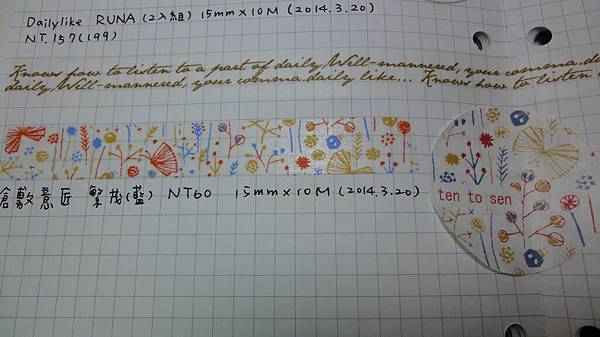 Dailylike RUNA (2入組) 15mm×10M (2014.3.20)
NT.157(199)
Knows how to listen to a part of daily,Well-mannered, your comma.da
daily,Well-mannered, your comma.daily like... Knows how to listen
倉敷意匠 繁茂(藍) NT60 15mm×10M (2014.3.20)
ten to sen